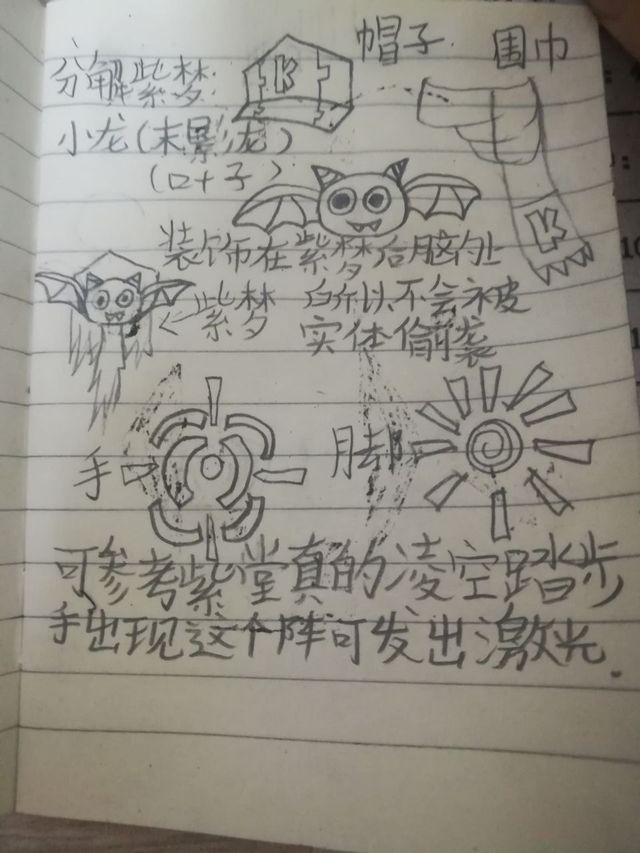 帽子 围巾
分解紫梦
K
小龙(末影龙)
(口十子)
K
装饰在紫梦后脑勺上
紫梦 所以不会被
实体偷袭
手
脚
可参考紫堂真的凌空踏步
手出现这个阵可发出激光.